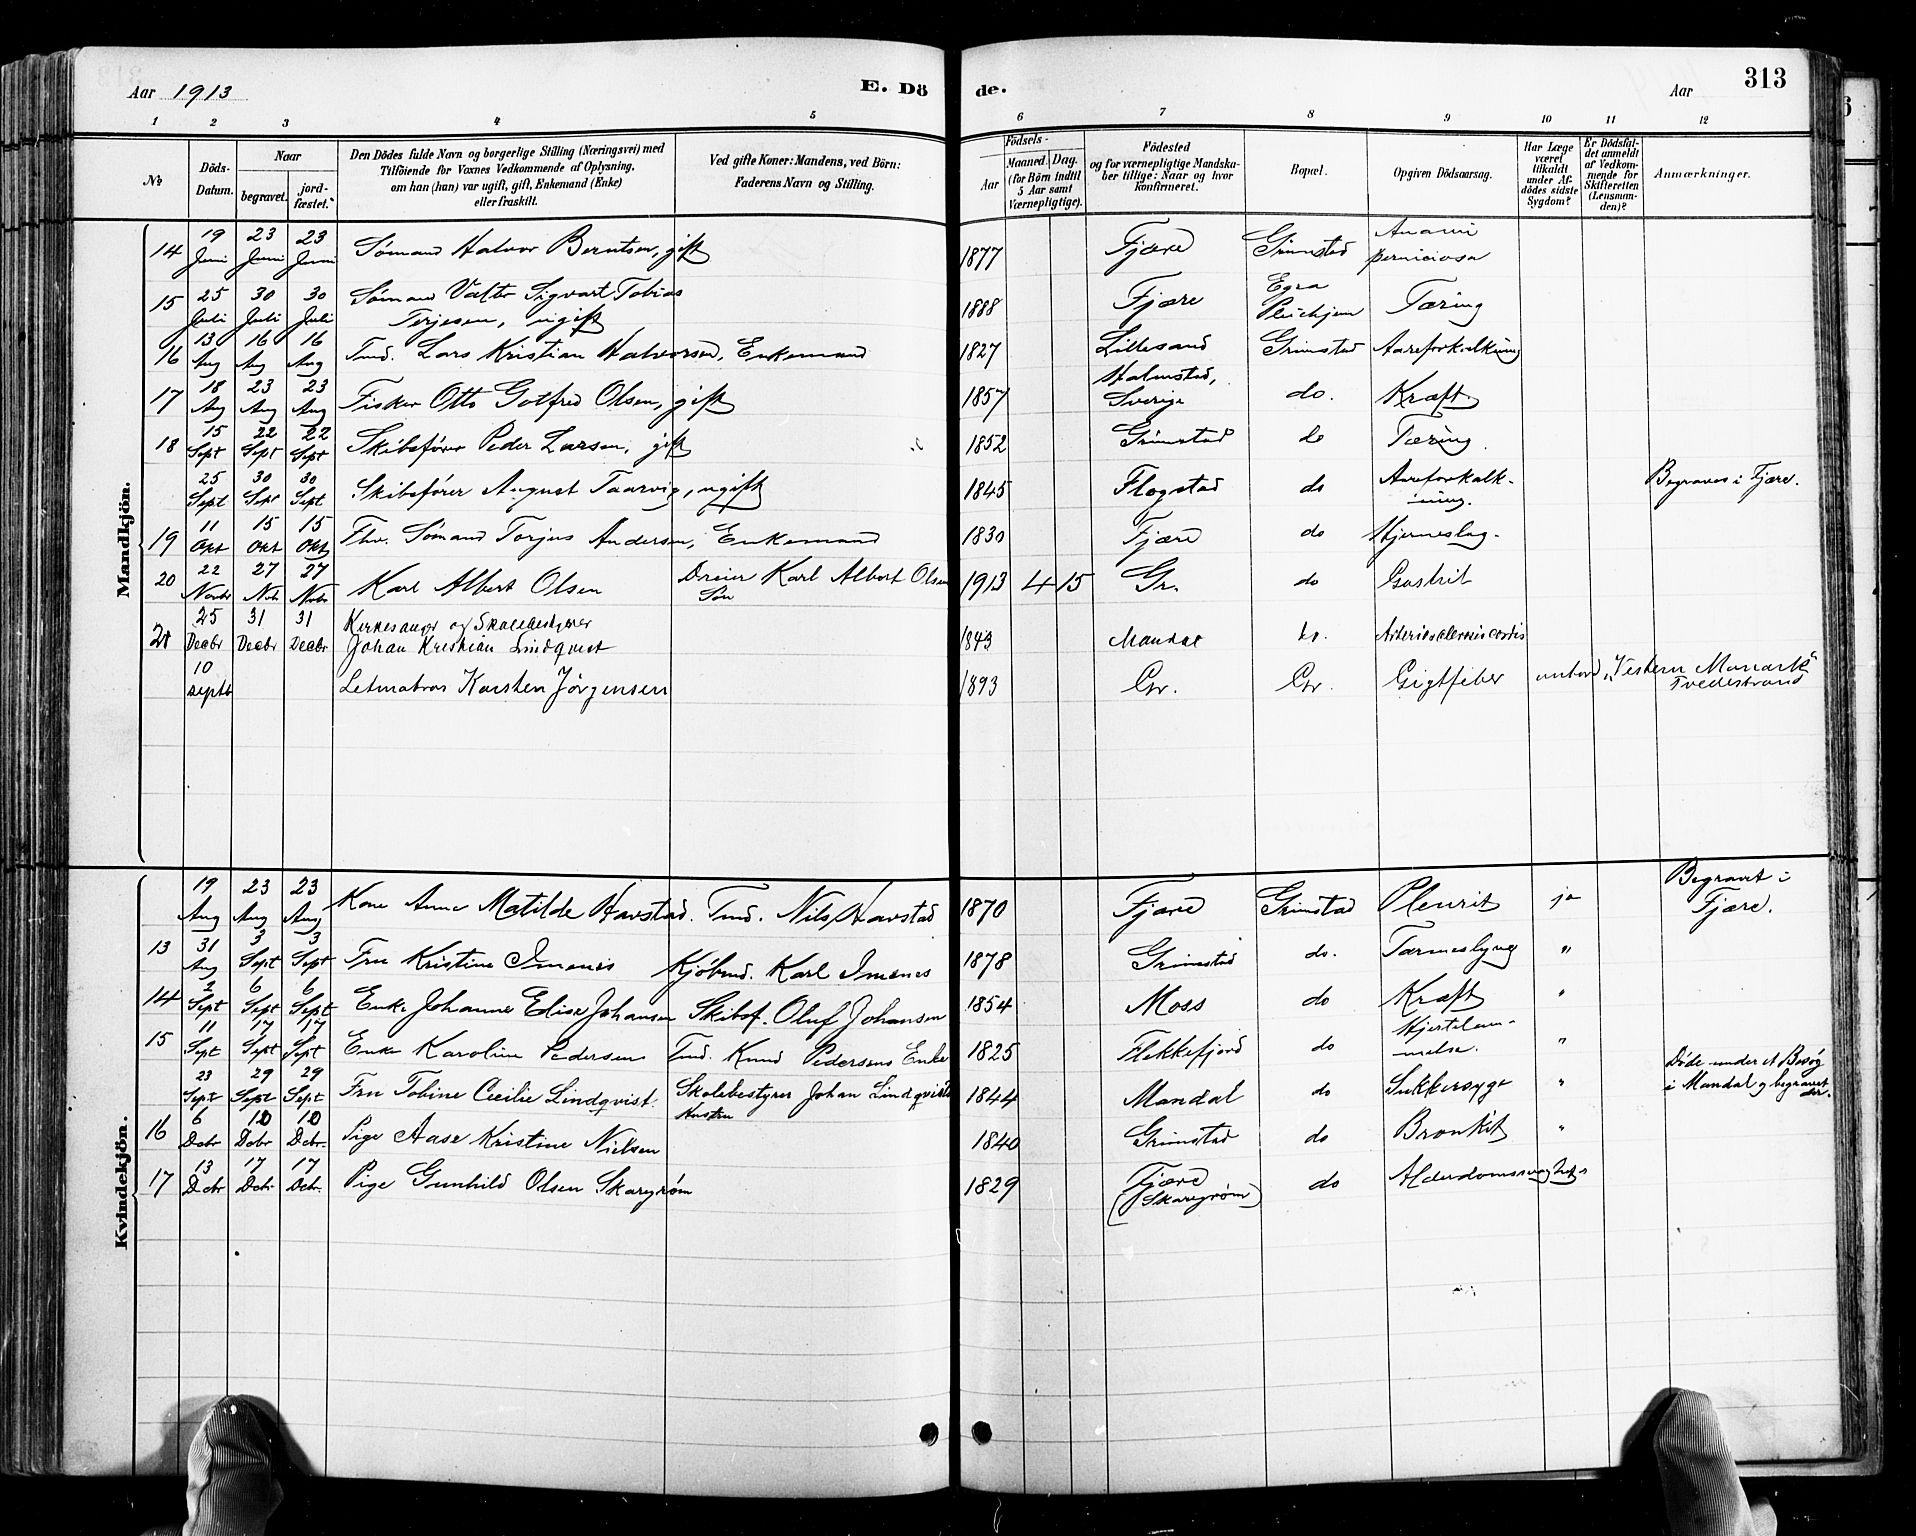 Aar 1913
E. Dö
de.
Aar
313
1 2 3 4 5 6 7 8 9 10 11 12
No
Döds-Datum.
Naar
begravet.
jord-fæstet.
Den Dödes fulde Navn og borgerlige Stilling (Næringsvei) med
Tilföiende for Voxnes Vedkommende af Oplysning,
om han (hun) var ugift, gift, Enkemand (Enke)
eller fraskilt.
Ved gifte Koner: Mandens, ved Börn:
Faderens Navn og Stilling.
Födsels-
Aar
Maaned. Dag.
(for Börn indtil
5 Aar samt
Værnepligtige).
Födested
og for værnepligtige Mandska-
ber tillige: Naar og hvor
konfirmeret.
Bopæl.
Opgiven Dödsaarsag.
Har Læge
været
tilkaldt
under Af-
dödes sidste
Sygdom?
Er Dödsfal-
det anmeldt
af Vedkom-
mende for
Skifteretten
(Lensman-
den)?
Anmærkninger.
Mandkjön.
14 19 Juni 23 Juni 23 Juni Sømand Halvor Berntsen, gift 1877 Fjære Grimstad Anæmi perniciosa
15 25 Juli 30 Juli 30 Juli Sømand Valter Sigvart Tobias
Terjesen, ugift 1888 Fjære Egra Pleiehjem Tæring
16 13 Aug 16 Aug 16 Aug Tmd. Lars Kristian Halvorsen, Enkemand 1827 Lillesand Grimstad Aareforkalkning
17 18 Aug 23 Aug 23 Aug Fisker Otto Gotfred Olsen, gift 1857 Halmstad, Sverige do. Kræft
18 15 Sept 22 Sept 22 Sept Skibsfører Peder Larsen, gift 1852 Grimstad do Tæring.
25 Sept 30 Sept 30 Sept Skibsfører August Taarvig, ugift 1845 Flogstad do Aareforkalk-
ning. Begraves i Fjære.
19 11 Okt 15 Okt 15 Okt Fhv. Sømand Torjus Andersen, Enkemand 1830 Fjære do Hjerneslag.
20 22 Novbr 27 Nvbr 27 Novbr Karl Albert Olsen Dreier Karl Albert Olsen
Søn 1913 4 15 Gr. do Gastrit
21 25 Decbr 31 Decbr 31 Decbr Kirkesanger og Skolebestyrer
Johan Kristian Lindqvist 1843 Mandal do. Arteriosclerosis cordis
10 septb Letmatros Karsten Jörgensen 1893 Gr. Gr. Gigtfeber ombord "Vestern Monark"
Tvedestrand
Kvindekjön.
19 Aug 23 Aug 23 Aug Kone Anne Matilde Havstad. Tmd. Nils Havstad 1870 Fjære Grimstad Pleurit ja Begravet i
Fjære.
13 31 Aug 3 Sept 3 Sept Fru Kristine Imenes Kjøbmd. Karl Imenes 1878 Grimstad do. Tarmeslyng "
14 2 Sept 6 Sept 6 Sept Enke Johanne Elise Johansen Skibsf. Oluf Johansen 1854 Moss do Kræft "
15 11 Sept 17 Sept 17 Sept Enke Karoline Pedersen Tmd. Knud Pedersens Enke 1825 Flekkefjord do Hjertelam-
melse. "
23 Sept 29 Sept 29 Sept Fru Tobine Cecilie Lindqvist. Skolebestyrer Johan Lindqvists
Hustru 1844 Mandal do Sukkersyge " Døde under et Besøg
i Mandal og begravet
der.
16 6 Dcbr 10 Dcbr 10 Dcbr. Pige Aase Kristine Nielsen 1840 Grimstad do Bronkit "
17 13 Dcbr 17 Dcbr 17 Dcbr. Pige Gunhild Olsen Skaregrøm 1829 Fjære
(Skaregrøm) do Alderdomssvaghed